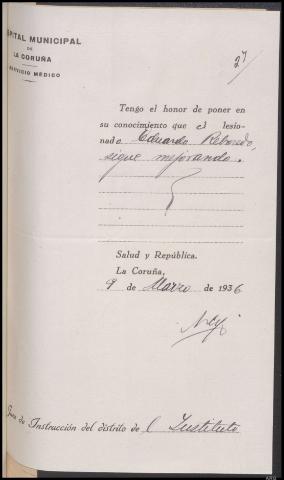 PITAL MUNICIPAL
DE
LA CORUÑA
SERVICIO MEDICO
27
Tengo el honor de poner en
su conocimiento que el lesio-
nado Eduardo Reboredo,
sigue mejorando.
Salud y República.
La Coruña,
9 de Marzo de 1936
Juez de Instrucción del distrito de l Instituto